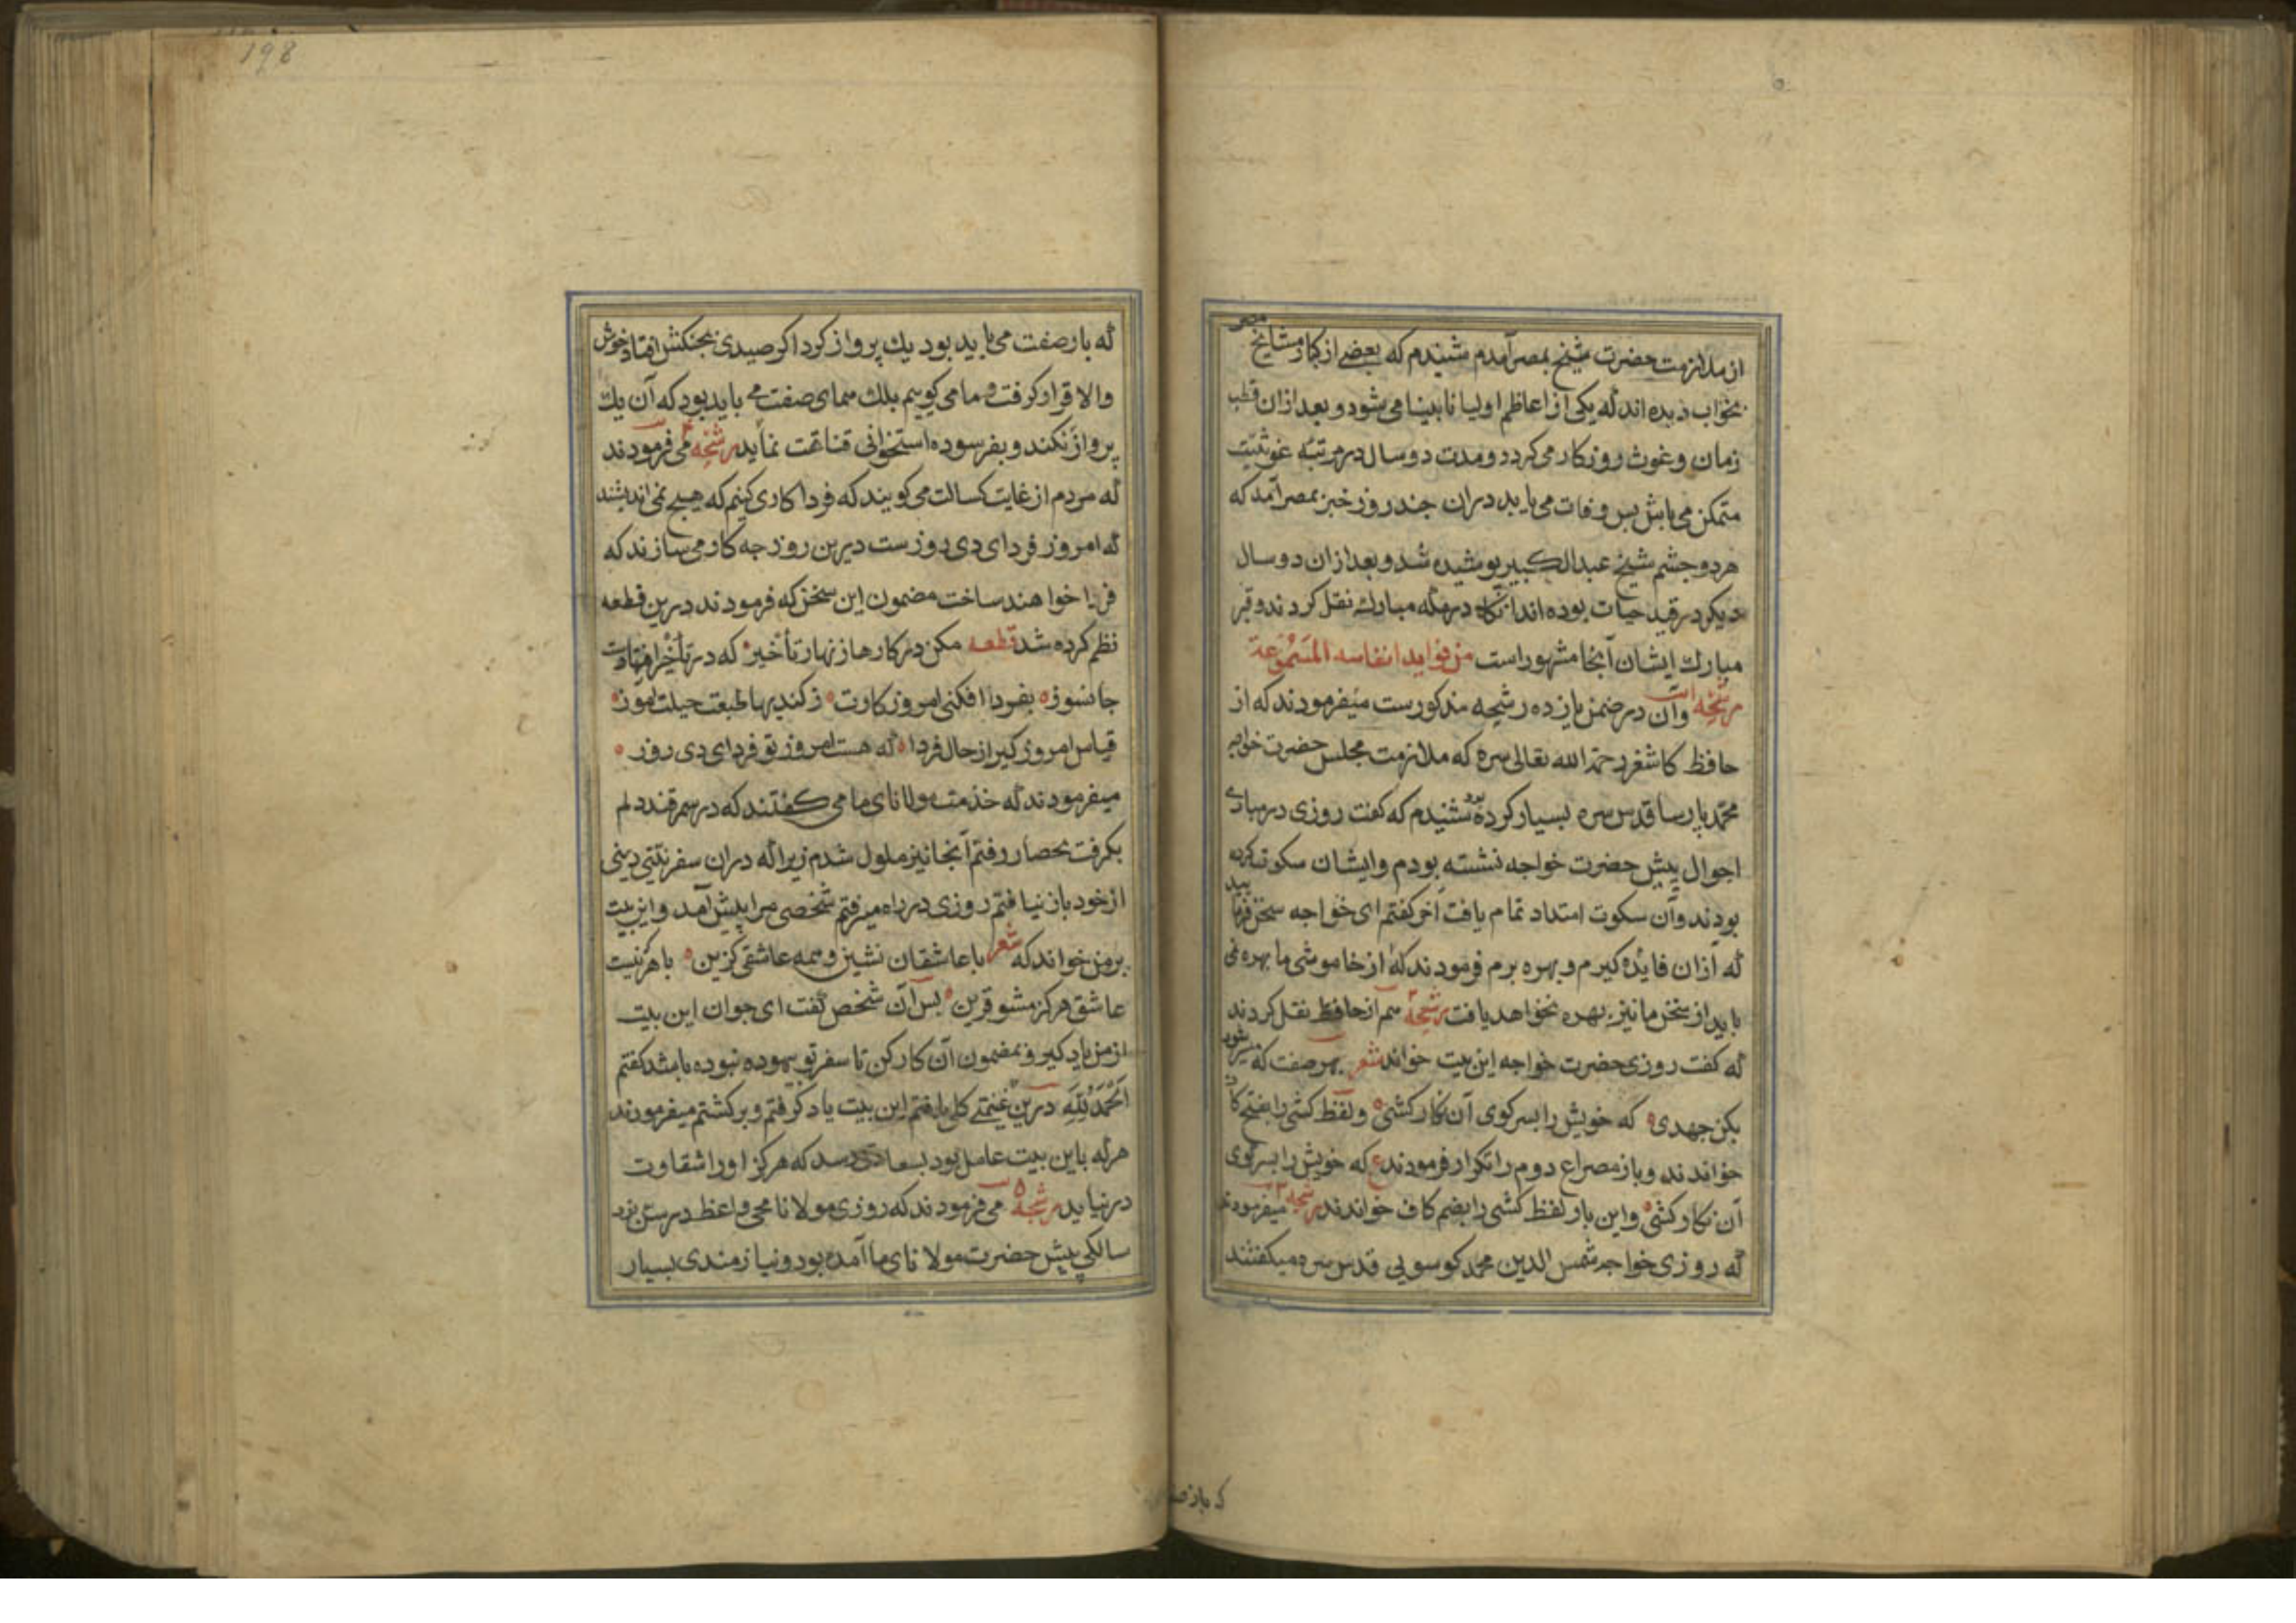 از ملازمت حضرت شیخ بمصر آمدم شنیدم که بعضی از کبار مشایخ مصر
بخواب دیده اند که یکی از اعاظم اولیا نابینا می شود و بعد ازان قطب
زمان و غوث روزکار می کردد و مدت دو سال در مرتبۀ غوثیت
متمکن می باشد پس وفات می یابد دران چند روز خبر بمصر آمد که
هر دو چشم شیخ عبدالکبیر پوشیده شد و بعد ازان دو سال
دیکر در قید حیات بوده اند آنکاه در مکه مبارک نقل کردند و قبر
مبارک ایشان آنجا مشهور است من فواید انفاسه المسموعة
وآن در ضمن یازده رشحه مذکورست رشحه ۱ میفرمودند که از
حافظ کاشغر رحمة الله تعالی سره که ملازمت مجلس حضرت خواجه
محمد پارسا قدس سره بسیار کرده بود شنیدم که کفت روزی در مبادی
احوال پیش حضرت خواجه نشسته بودم وایشان سکوت کرده
بودند وآن سکوت امتداد تمام یافت آخر کفتم ای خواجه سخن فرمایید
که ازان فایده کیرم و بهره برم فرمودند که از خاموشی ما بهره نمی
یابد از سخن ما نیز بهره نخواهد یافت رشحه ۲ هم از حافظ نقل کردند
که کفت روزی حضرت خواجه این بیت خواند شعر بهر صفت که میسر شود
بکن جهدی که خویش را بسر کوی آن نکار کشی ولفظ کشی را بفتح کاف
خواندند و باز مصراع دوم را تکرار فرمودند ع که خویش را بسر کوی
آن نکار کشی واین بار لفظ کشی را بضم کاف خواندند رشحه ۳ میفرمودند
که روزی خواجه شمس الدین محمد کوسویی قدس سره میکفتند
که باز صف
198
که باز صفت می باید بود یک پرواز کرد اکر صیدی بچنکش افتاد خوش
والا قرار کرفت و ما می کوییم بلک همای صفت می باید بود که آن یک
پرواز نکند و بفرسوده استخوانی قناعت نماید رشحه ۴ می فرمودند
که مردم از غایت کسالت می کویند که فردا کاری کنیم که هیچ نمی اندیشند
که امروز فردای دی روزست درین روز چه کار می سازند که
فردا خواهند ساخت مضمون این سخن که فرمودند درین قطعه
نظم کرده شد قطعه مکن در کارها زنهار تأخیر که در تأخیر آفتهاست
جانسوز بفردا افکنی امروز کارت ز کندیها طبعت حیلت آموز
قیاس امروز کیر از حال فردا که هست امروز تو فردای دی روز
میفرمودند که خدمت مولانای ما می کفتند که در سمرقند دلم
بکرفت بحصار رفتم آنجا نیز ملول شدم زیرا که دران سفر نیتی دینی
از خود باز نیافتم روزی در راه میرفتم شخصی مرا پیش آمد و این بیت
بر من خواند که شعر با عاشقان نشین و همه عاشقی کزین با هر که نیست
عاشق هرکز مشو قرین پس آن شخص کفت ای جوان این بیت
از من یاد کیر و بمضمون آن کار کن تا سفر تو بیهوده نبوده باشد کفتم
الحمد لله درین غنیمتی کلی یافتم این بیت یاد کرفتم و برکشتم میفرمودند
هر که باین بیت عامل بود بسعادتی رسد که هرکز او را شقاوت
در نیابد رشحه ۵ می فرمودند که روزی مولانا محی واعظ در سن نود
سالکی پیش حضرت مولانای ما آمده بود و نیازمندی بسیار